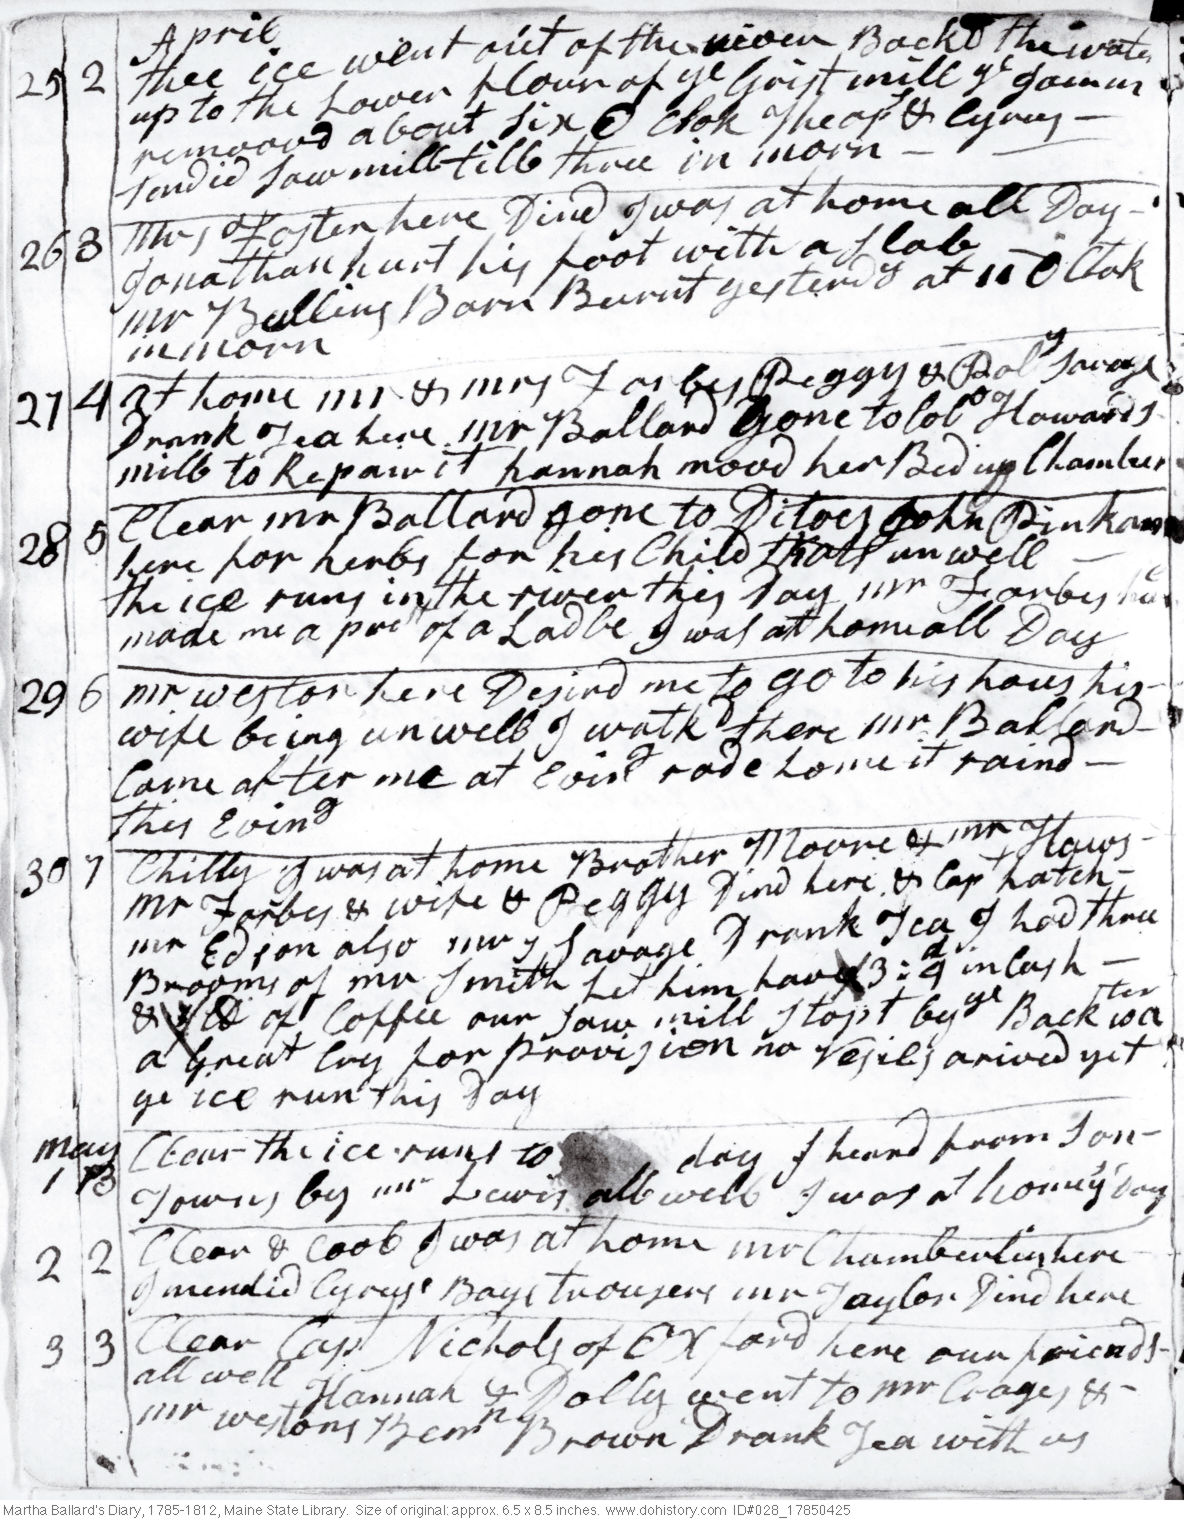 April
25 2 thee ice went out of the river Backt the water
up to the Lower flour of ye Grist mill ye jamm
removd about six O Clok Theops & Cyrus —
tendid Saw mill till three in morn —
26 3 Mrs Foster here Dind I was at home all Day —
Jonathan hurt his foot with a slab —
mr Bullins Barn Burnt yesterdy at 11 O Clok
in morn
27 4 at home mr & mrs Forbes Peggy & Poly Savage
Drank Tea here. mr Ballard gone to Colo Howards
mill to Repair it hannah movd her Bed up Chamber
28 5 Clear mr Ballard gone to Ditoes John Pinkam
here for herbs for his Child thats unwell —
the ice runs in the river this Day mr Forbes has
made me a prest of a Ladle I was at home all Day
29 6 mr weston here Desird me to go to his hous his —
wife being unwell I walkd there mr Ballard —
Came after me at Evin̄g rode home it raind —
this Eving
30 7 Chilly I was at home Brother Moore & mr Haws —
mr Forbes & wife & Peggy Dind here & Cap hatch —
mr Edson also mrs Savage Drank Tea I had thre
Brooms of mr Smith Let him have 3:4d in Cash —
& of Coffee our Saw mill Stopt by ye Back water
a Great Cry for provision no vesils arived yet
ye ice run this Day
May
1 B Clear the ice runs to day I heard from Jon —
Towns by mr Lewis all well I was at home ys day
2 2 Clear & Cool I was at home mr Chamberlin here —
I mendid Cyruss Bays trousers mr Taylor Dind here
3 3 Clear Cap Nichols of Oxford here our friends —
all well Hannah & Dolly went to mr Crages & —
mr westons Bemn Brown Drank Tea with us
Martha Ballard's Diary, 1785-1812, Maine State Library. Size of original: approx. 6.5 x 8.5 inches. www.dohistory.com ID#028_17850425